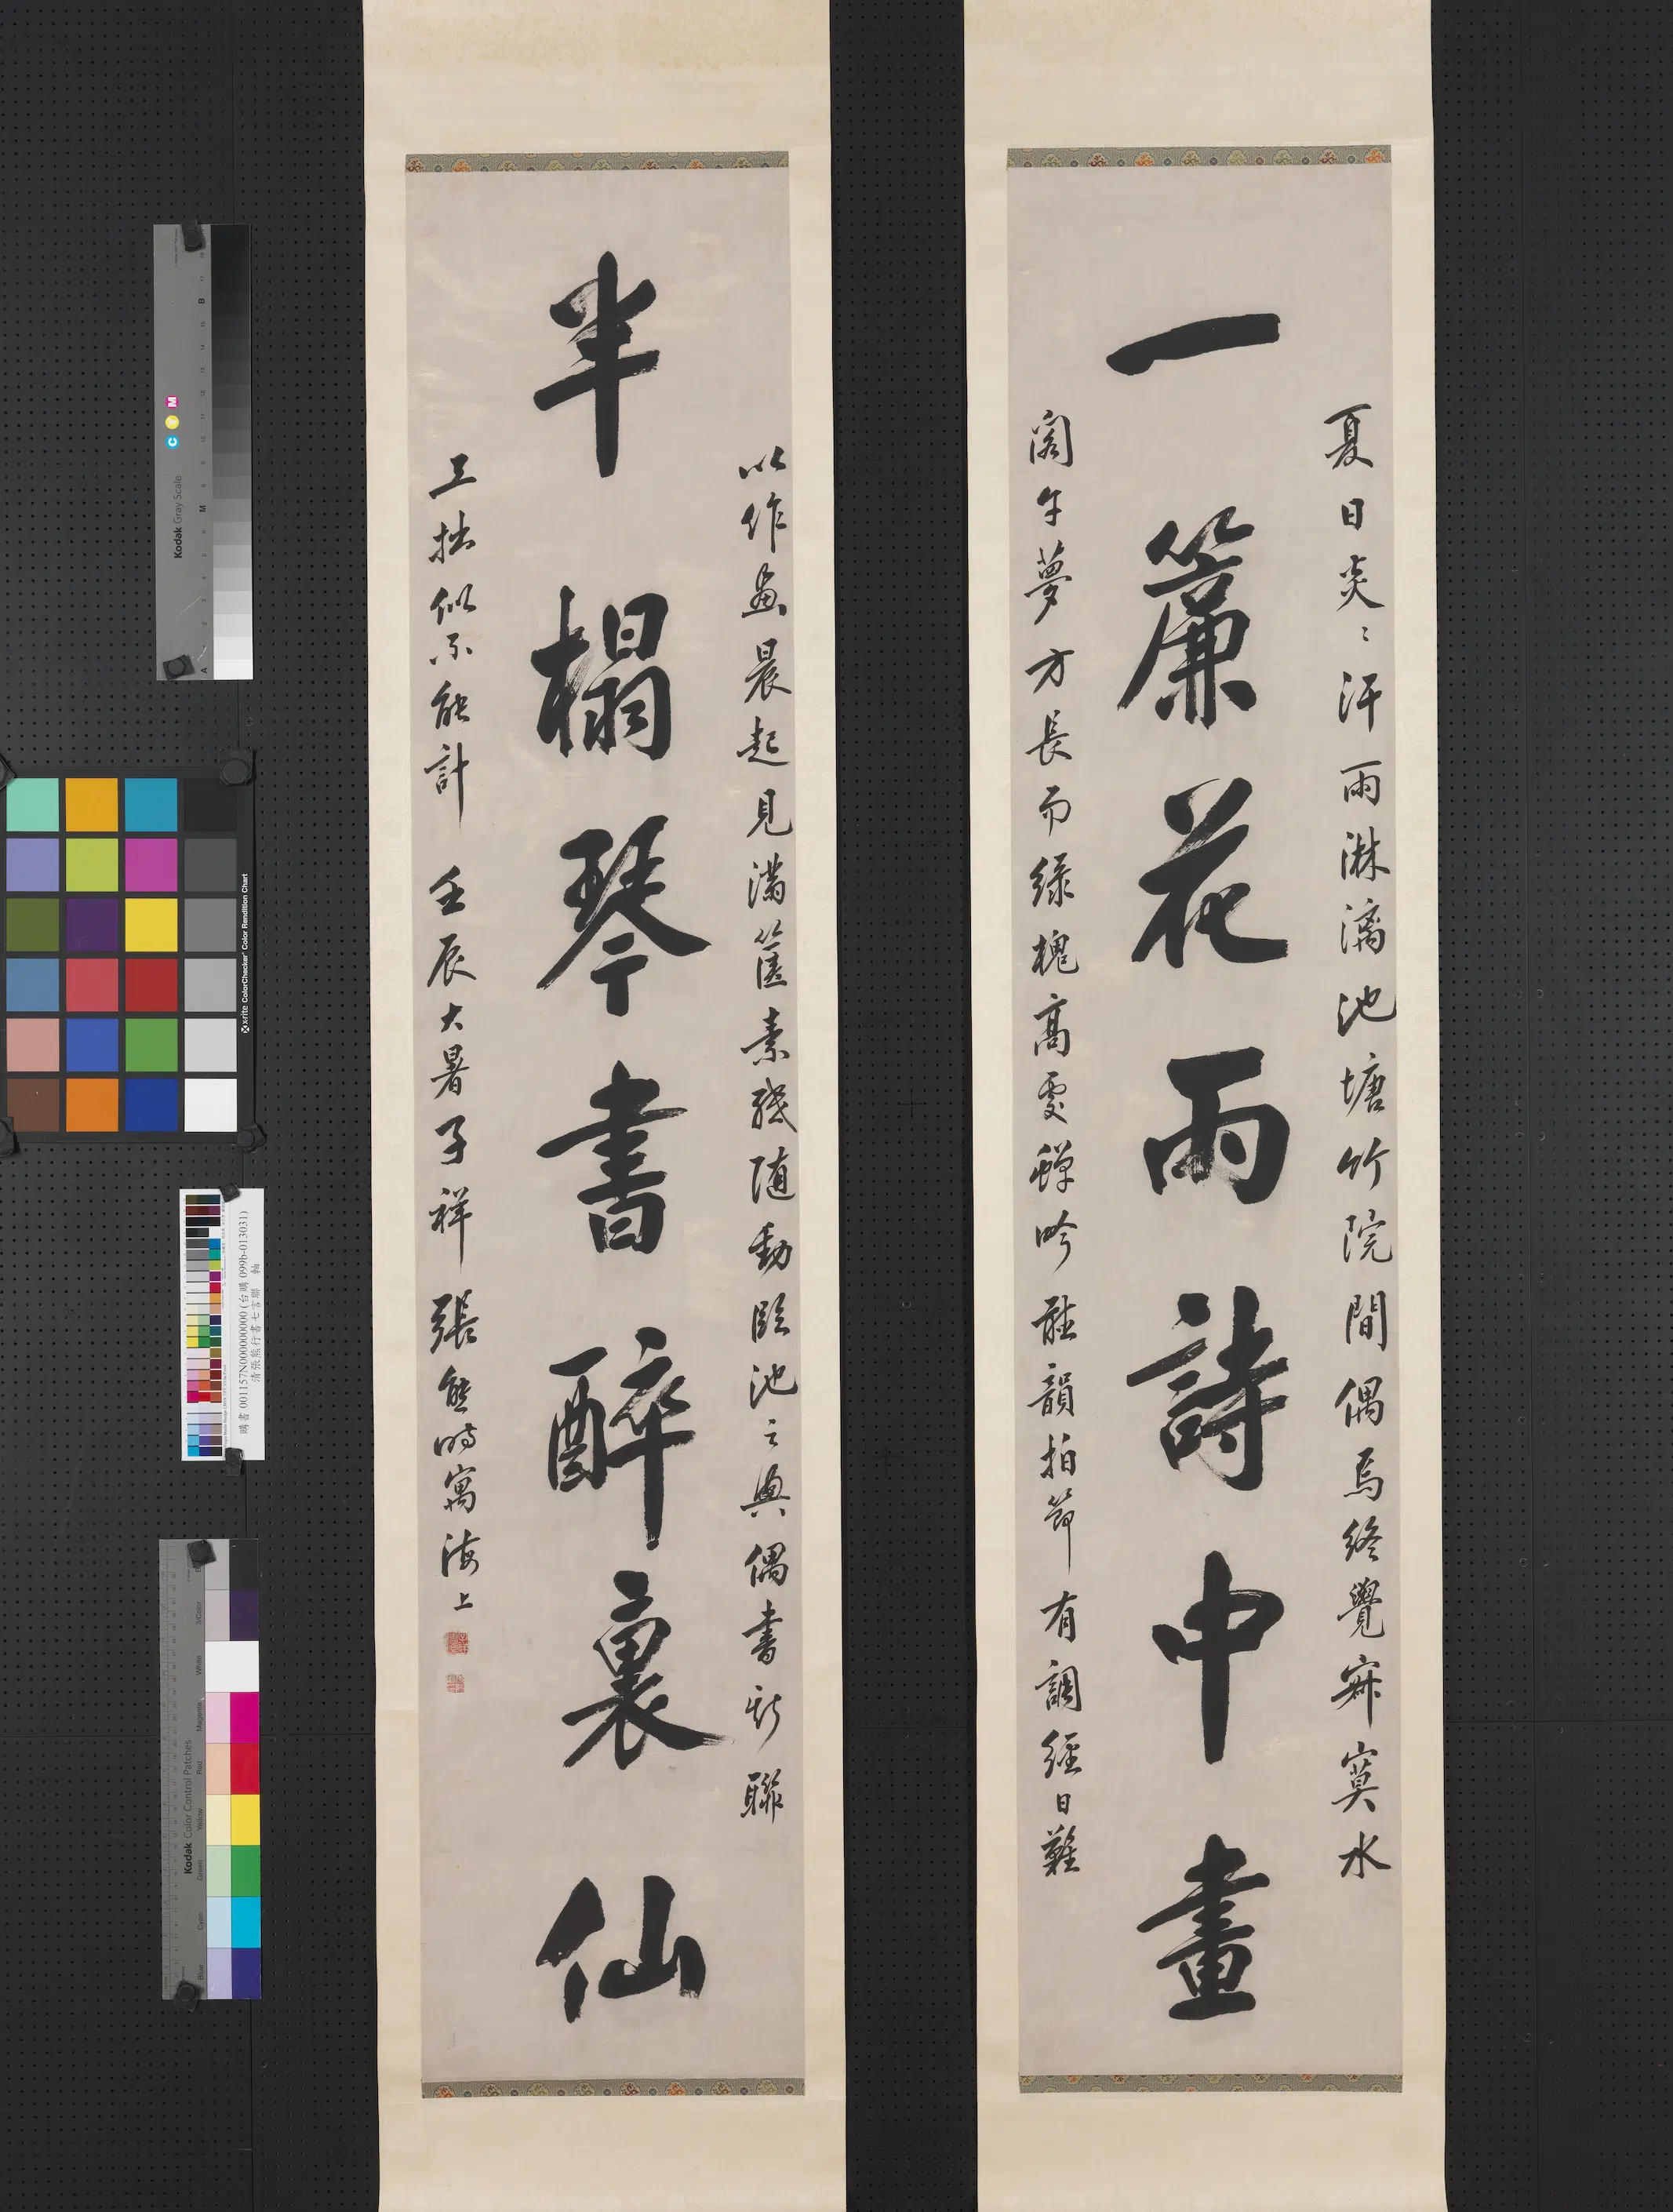 一簾花雨詩中畫
夏日炎〻汗雨淋漓池塘竹院間偶焉終覺寂寞水
閣午夢方長而綠槐高處蟬吟雖韻拍節有調經日難
半榻琴書醉裏仙
以作畫晨起見滿篋素殘隨動臨池之興偶書新聯
工拙似不能計 壬辰大暑子祥張熊時寓海上
Kodak Gray Scale
C Y M
A
M
B
x-rite ColorChecker Color Rendition Chart
購書 001157N000000000 (台購 099b-013031)
清張熊行書七言聯 軸
Kodak Color Control Patches
Blue
Cyan
Green
Yellow
Red
Magenta
White
3/Color